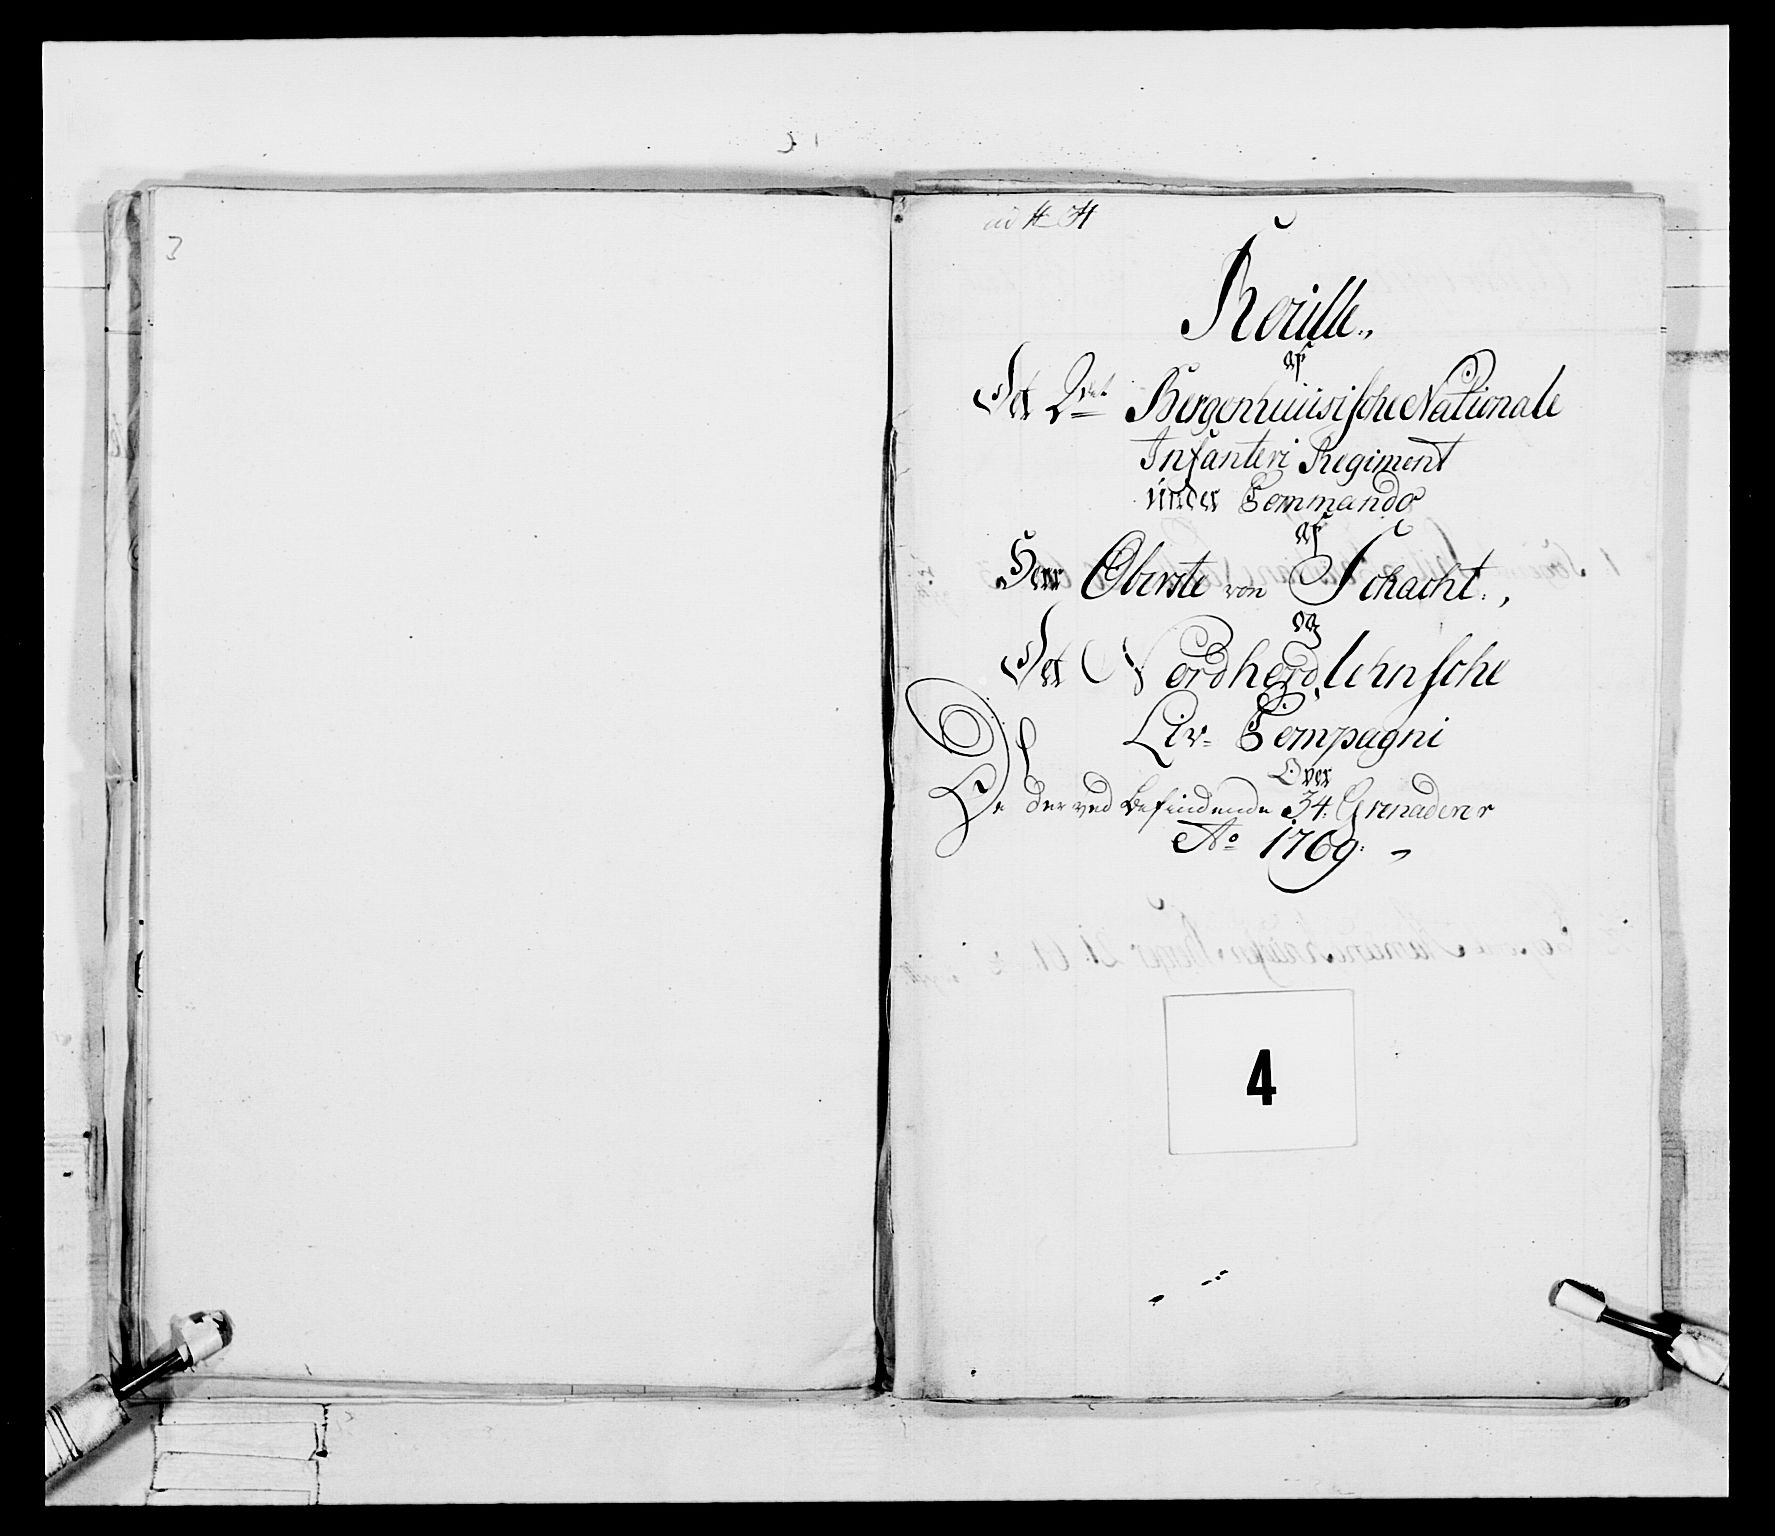 ad H. H
Roulle.,
af
Det 2det Bergenhuusische Nationale
Infanteri Regiment
under Commando
af
Herr Oberste von Schacht.,
og
Det Nordhordlehnsche
Liv- Compagni
Over
De der ved befindende 34. Grenaderer
Ao 1769.
4